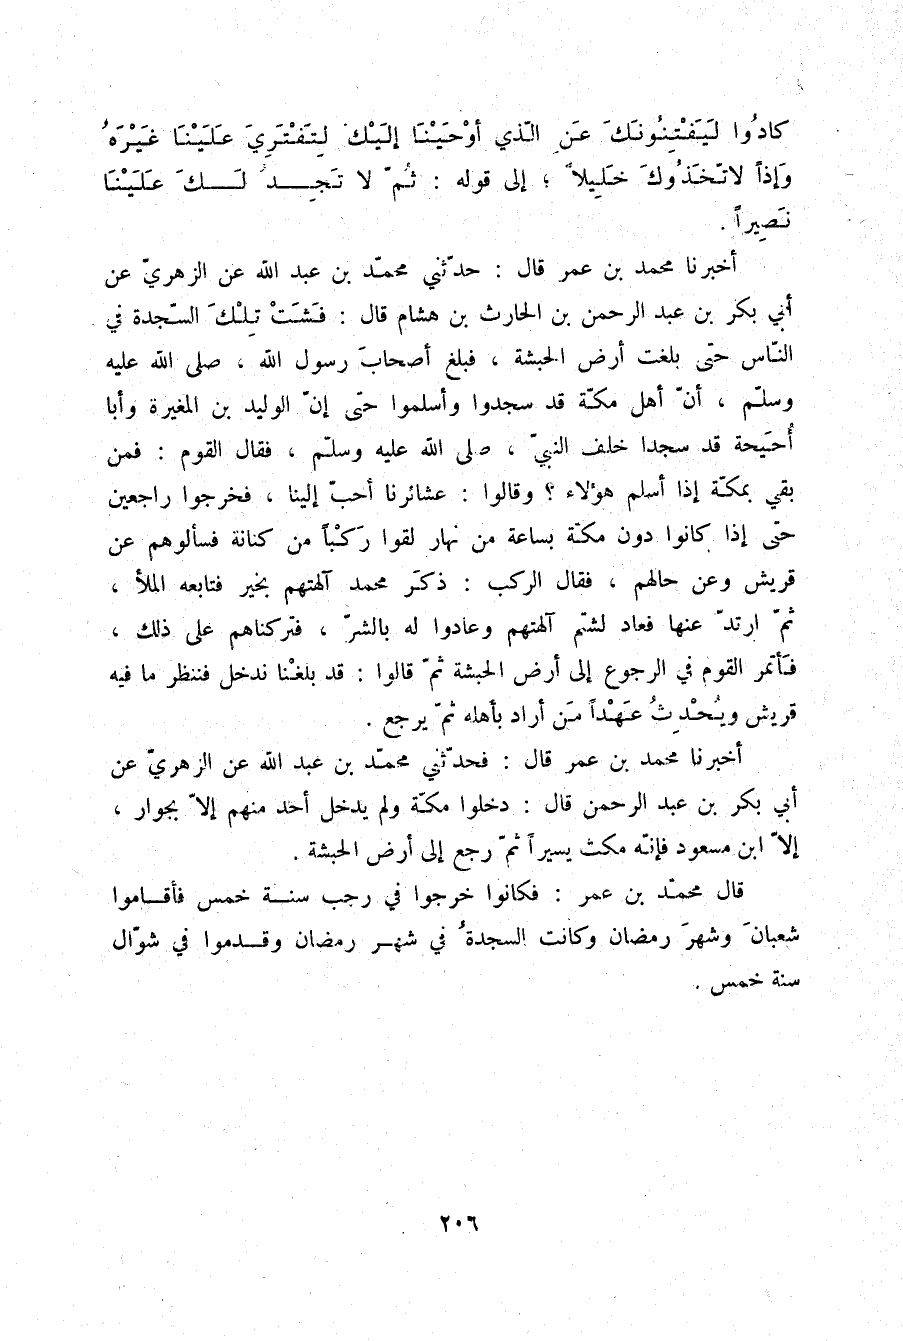 كادُوا لَيَفْتِنُونَكَ عَنِ الّذي أوْحَيْنَا إلَيْكَ لِتَفْتَرِيَ عَلَيْنَا غَيْرَهُ
وَإذاً لاتّخَذُوكَ خَلِيلاً ؛ إلى قوله : ثُمّ لا تَجِــدُ لَــكَ عَلَيْنَا
نَصِيراً .
أخبرنا محمد بن عمر قال : حدّثني محمّد بن عبد الله عن الزهريّ عن
أبي بكر بن عبد الرحمن بن الحارث بن هشام قال : فَشَتْ تِلْكَ السّجدة في
النّاس حتّى بلغت أرض الحبشة ، فبلغ أصحابَ رسول الله ، صلى الله عليه
وسلّم ، أنّ أهل مكّة قد سجدوا وأسلموا حتّى إنّ الوليد بن المغيرة وأبا
أُحَيحة قد سجدا خلف النبيّ ، صلى الله عليه وسلّم ، فقال القوم : فمن
بقي بمكّة إذا أسلم هؤلاء ؟ وقالوا : عشائرنا أحبّ إلينا ، فخرجوا راجعين
حتّى إذا كانوا دون مكّة بساعة من نهار لقوا رَكْباً من كنانة فسألوهم عن
قريش وعن حالهم ، فقال الركب : ذكَر محمد آلهتهم بخير فتابعه الملأ ،
ثمّ ارتدّ عنها فعاد لشتم آلهتهم وعادوا له بالشرّ ، فتركناهم على ذلك ،
فَأتَمر القوم في الرجوع إلى أرض الحبشة ثمّ قالوا : قد بلغْنا ندخل فننظر ما فيه
قريش ويُحْدِثُ عَهْداً مَن أراد بأهله ثمّ يرجع .
أخبرنا محمد بن عمر قال : فحدّثني محمّد بن عبد الله عن الزهريّ عن
أبي بكر بن عبد الرحمن قال : دخلوا مكّة ولم يدخل أحد منهم إلاّ بجوار ،
إلاّ ابن مسعود فإنّه مكث يسيراً ثمّ رجع إلى أرض الحبشة .
قال محمّد بن عمر : فكانوا خرجوا في رجب سنــة خمس فأقــاموا
شعبانَ وشهرَ رمضان وكانت السجدةُ في شهــر رمضان وقــدموا في شوّال
سنة خمس .
٢٠٦